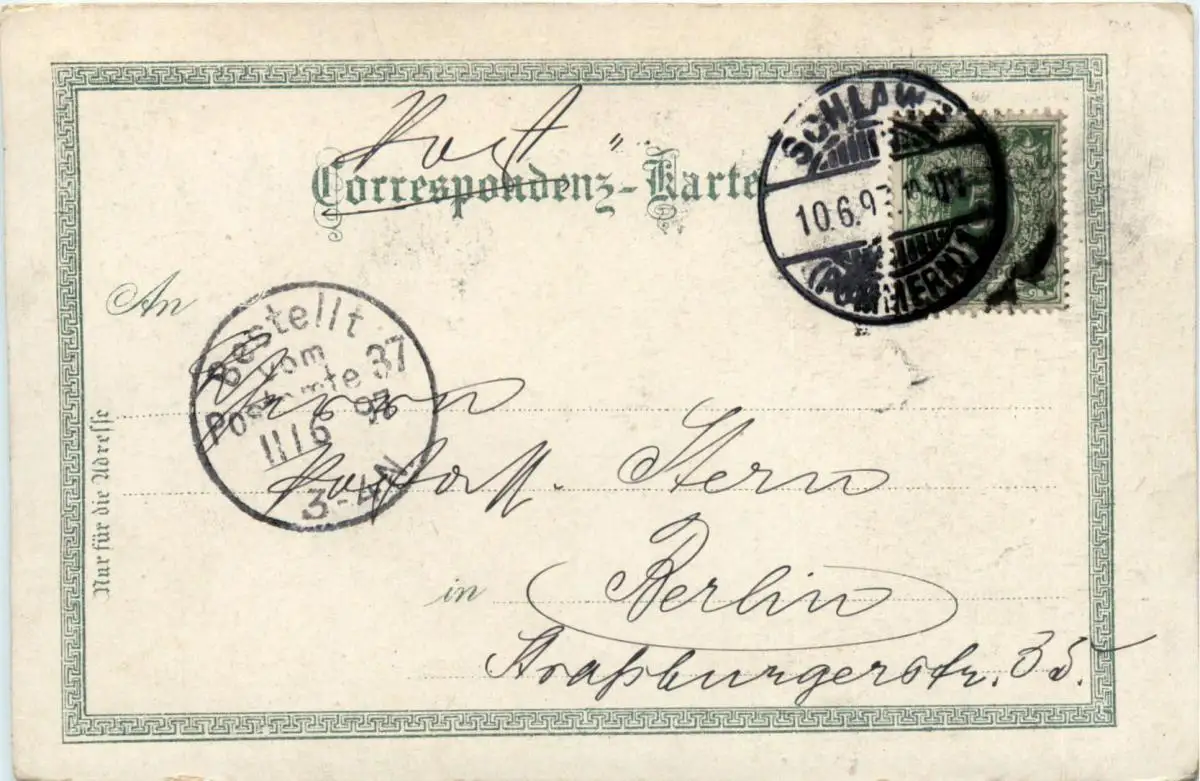 Post
Correspondenz-Karte
SCHLAWE
10.6.97.
(POMMERN)
An
Bestellt
vom
Postamte 37
11/6 97
3-4N
Nur für die Adresse
Herrn
Stern
in Berlin
Straßburgerstr. 35.